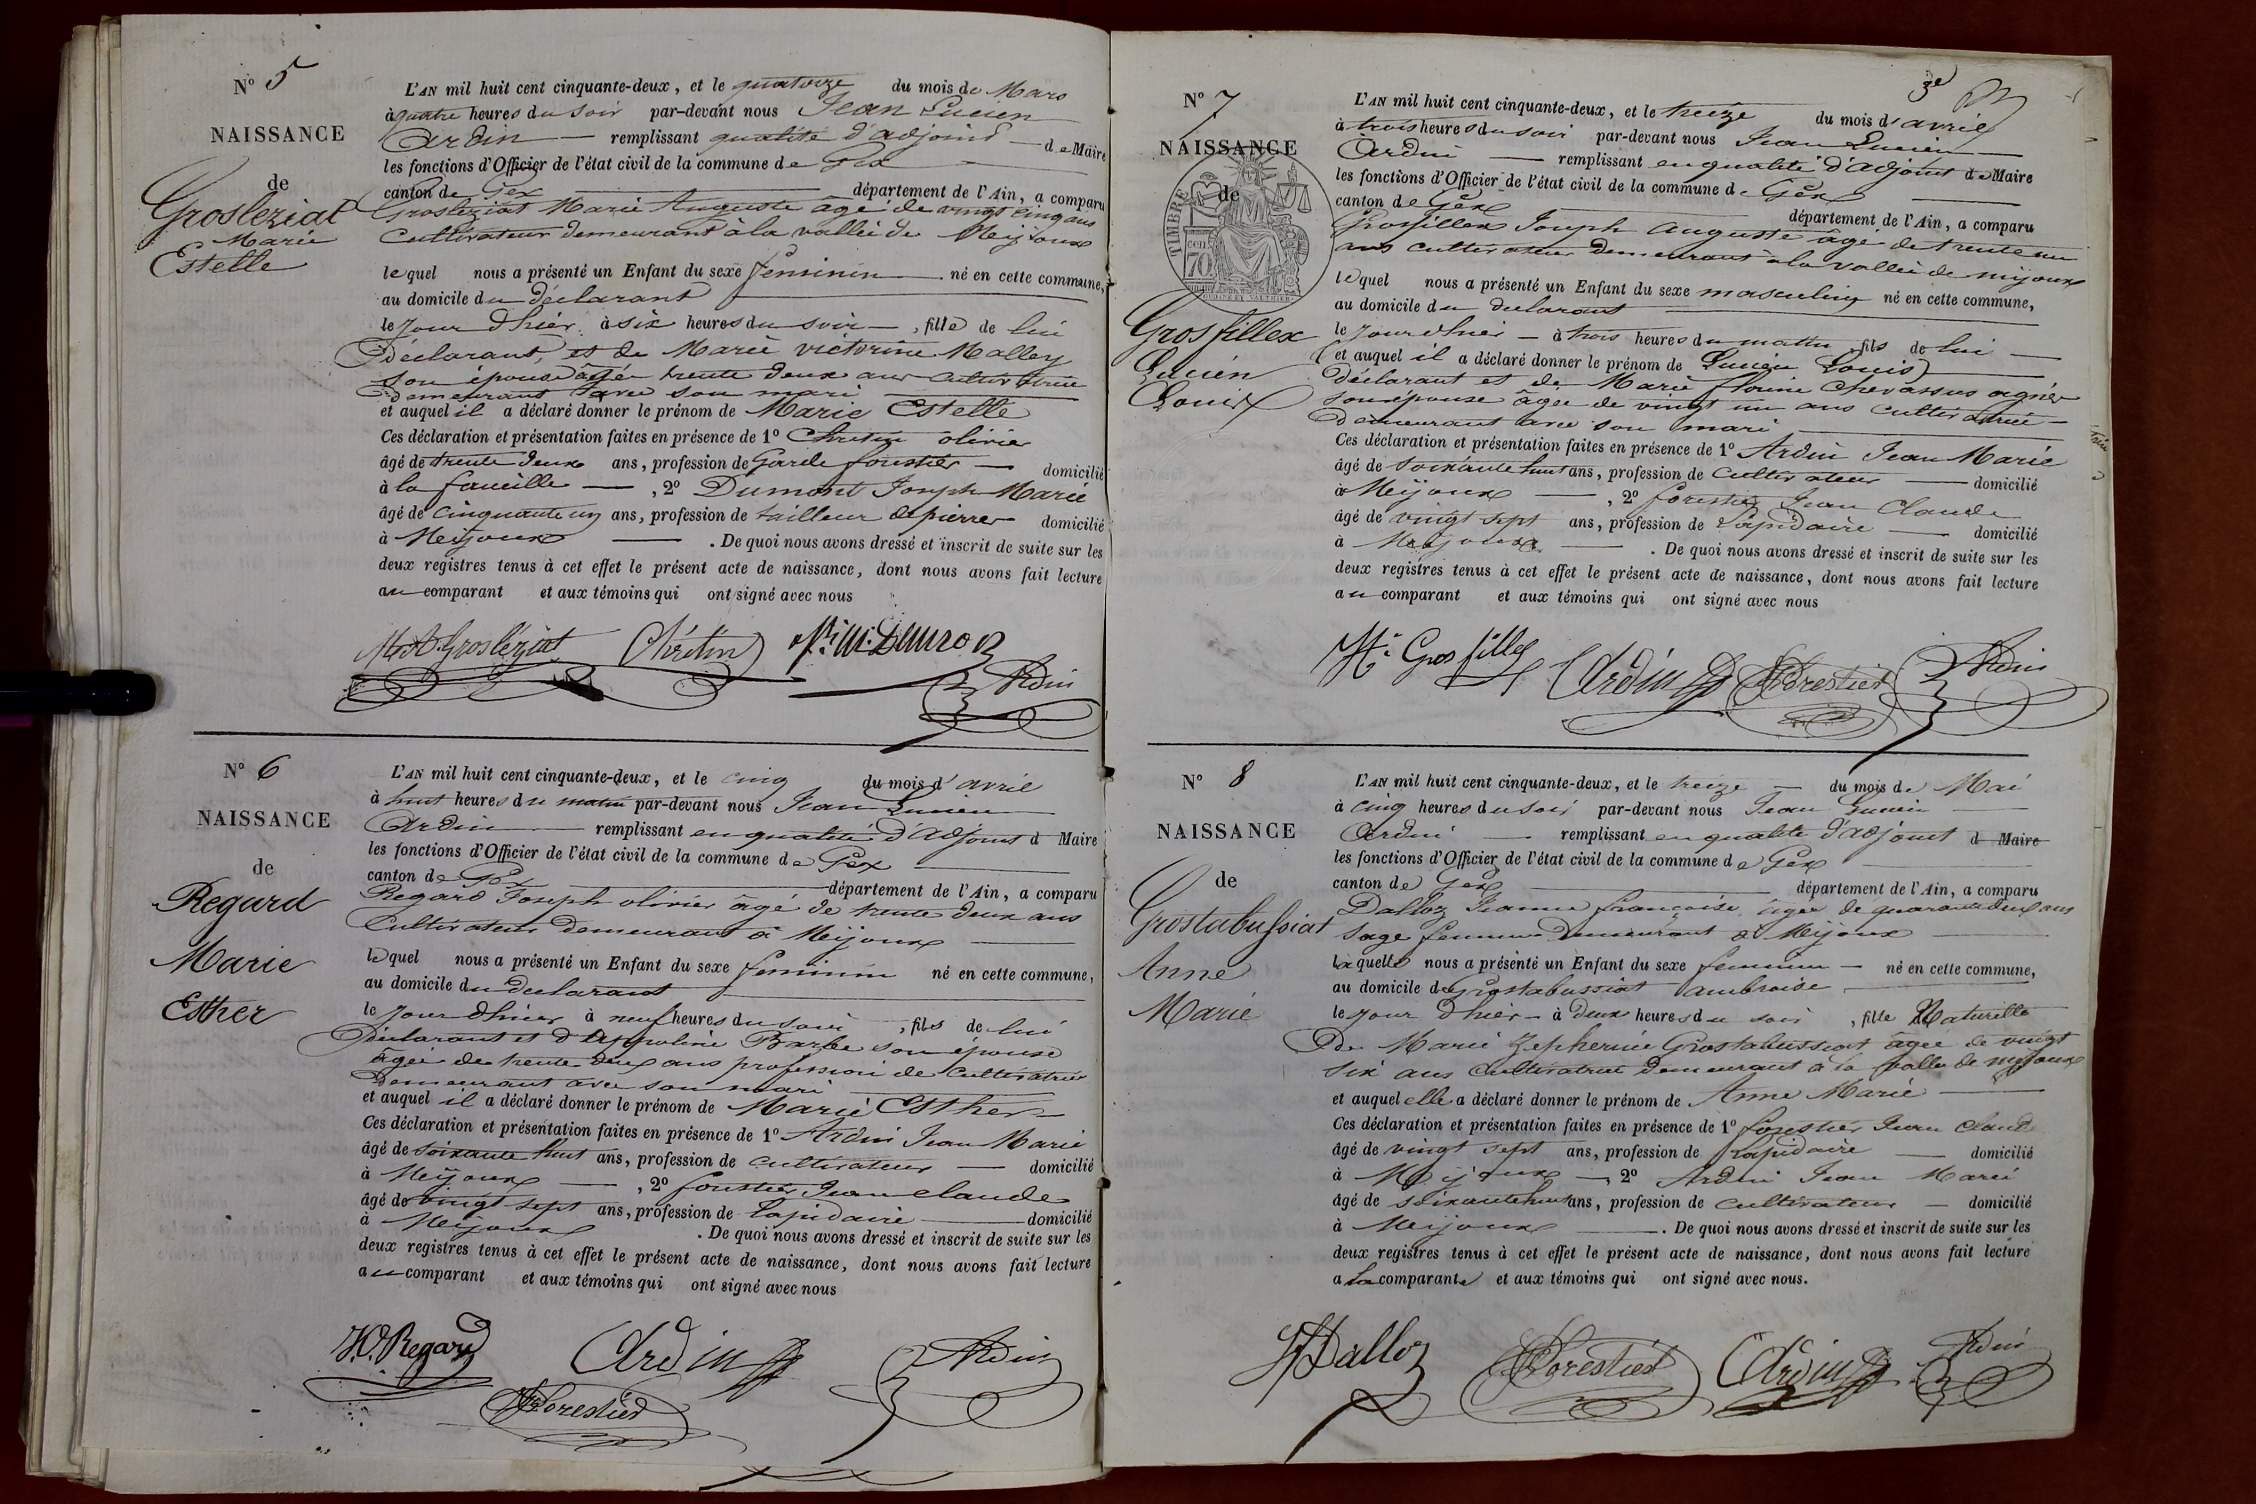 N° 5
NAISSANCE
de
Grosleziat
Marie
Estelle
L'AN mil huit cent cinquante-deux, et le quatorze du mois de Mars
à quatre heures du soir par-devant nous Jean Lucien
Ardin — remplissant qualité d'adjoint — de Maire
les fonctions d'Officier de l'état civil de la commune de Gex
canton de Gex — département de l'Ain, a comparu
Grosleziat Marie Auguste âgé de vingt cinq ans
Cultivateur demeurant à la vallée de Meijoux
lequel nous a présenté un Enfant du sexe féminin — né en cette commune,
au domicile du déclarant
le jour d'hier à six heures du soir —, fille de lui
déclarant, et de Marie victorine Malley
son épouse âgée trente deux ans cultivatrice
demeurant avec son mari
et auquel il a déclaré donner le prénom de Marie Estelle
Ces déclaration et présentation faites en présence de 1° Chretin olivier
âgé de trente deux ans, profession de Garde forestier — domicilié
à la faucille —, 2° Dumont Joseph Marie
âgé de cinquante un ans, profession de tailleur de pierres domicilié
à Meijoux — . De quoi nous avons dressé et inscrit de suite sur les
deux registres tenus à cet effet le présent acte de naissance, dont nous avons fait lecture
au comparant et aux témoins qui ont signé avec nous
M A Grosléziat Chrétin Ardin
N° 6
NAISSANCE
de
Regard
Marie
Esther
L'AN mil huit cent cinquante-deux, et le cinq du mois d'avril
à huit heures du matin par-devant nous Jean Lucien
Ardin — remplissant en qualité d'adjoint d Maire
les fonctions d'Officier de l'état civil de la commune de Gex
canton de Gex — département de l'Ain, a comparu
Regard Joseph olivier âgé de trente deux ans
Cultivateur demeurant à Meijoux
lequel nous a présenté un Enfant du sexe feminin né en cette commune,
au domicile du declarant
le jour d'hier à neuf heures du soir, fils de lui
Déclarant et d'Appolonie Barbe son épouse
âgée de trente deux ans profession de Cultivatrice
demeurant avec son mari
et auquel il a déclaré donner le prénom de Marie Esther —
Ces déclaration et présentation faites en présence de 1° Ardin Jean Marie
âgé de soixante huit ans, profession de cultivateur — domicilié
à Meijoux —, 2° forestier Jean claude
âgé de vingt sept ans, profession de Lapidaire — domicilié
à Meijoux . De quoi nous avons dressé et inscrit de suite sur les
deux registres tenus à cet effet le présent acte de naissance, dont nous avons fait lecture
au comparant et aux témoins qui ont signé avec nous
J.O. Regard Ardin Ardin
Forestier
3e
N° 7
NAISSANCE
de
TIMBRE
70
Grosfillex
Lucien
Louis
L'AN mil huit cent cinquante-deux, et le treize du mois d'avril
à trois heures du soir par-devant nous Jean Lucien —
Ardin — remplissant en qualité d'adjoint de Maire
les fonctions d'Officier de l'état civil de la commune de Gex
canton de Gex — département de l'Ain, a comparu
Grosfillex Joseph Auguste âgé de trente un
ans cultivateur demeurant à la vallée de mijoux
lequel nous a présenté un Enfant du sexe masculin né en cette commune,
au domicile du declarant
le jour d'hier — à trois heures du matin, fils de lui —
et auquel il a déclaré donner le prénom de Lucien Louis
déclarant et de Marie florine Chevassus agnès
son épouse âgée de vingt un ans cultivatrice —
demeurant avec son mari
Ces déclaration et présentation faites en présence de 1° Ardin Jean Marie
âgé de soixante huit ans, profession de cultivateur — domicilié
à Meijoux —, 2° forestier Jean Claude
âgé de vingt sept ans, profession de Lapidaire — domicilié
à Meijoux — . De quoi nous avons dressé et inscrit de suite sur les
deux registres tenus à cet effet le présent acte de naissance, dont nous avons fait lecture
au comparant et aux témoins qui ont signé avec nous
Gros fillex Ardin Forestier Ardin
N° 8
NAISSANCE
de
Grostabussiat
Anne
Marie
L'AN mil huit cent cinquante-deux, et le treize — du mois de Mai
à cinq heures du soir par-devant nous Jean Lucien —
Ardin — remplissant en qualité d'adjoint d Maire
les fonctions d'Officier de l'état civil de la commune de Gex
canton de Gex — département de l'Ain, a comparu
Dalloz Jeanne françoise âgée de quarante deux ans
sage femme demeurant à Mijoux
laquelle nous a présenté un Enfant du sexe feminin — né en cette commune,
au domicile de Grostabussiat ambroise
le jour d'hier — à deux heures du soir, fille Naturelle
De Marie Zepherine Grostabussiat âgée de vingt
six ans cultivatrice demeurant à la vallée de mijoux
et auquel elle a déclaré donner le prénom de Anne Marie
Ces déclaration et présentation faites en présence de 1° forestier Jean Claude
âgé de vingt sept ans, profession de Lapidaire — domicilié
à Mijoux —, 2° Ardin Jean Marie
âgé de soixante huit ans, profession de cultivateur — domicilié
à Meijoux — . De quoi nous avons dressé et inscrit de suite sur les
deux registres tenus à cet effet le présent acte de naissance, dont nous avons fait lecture
a la comparante et aux témoins qui ont signé avec nous.
Dalloz Forestier Ardin Ardin